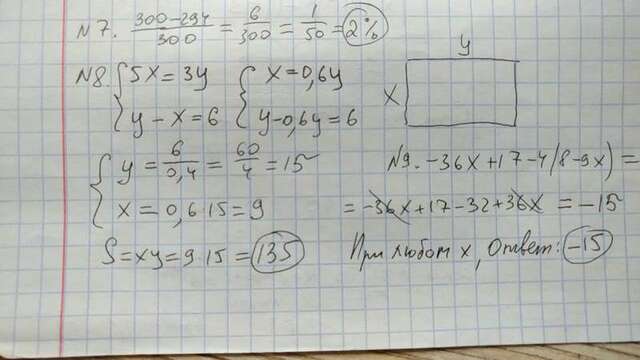 N7. (300-294)/300 = 6/300 = 1/50 = 2%
N8. { 5x = 3y { x = 0,6y
y - x = 6 y - 0,6y = 6
y
x
{ y = 6/0,4 = 60/4 = 15
x = 0,6·15 = 9
S = xy = 9·15 = 135
N9. -36x + 17 - 4(8-9x) =
= -36x + 17 - 32 + 36x = -15
При любом x, Ответ: -15